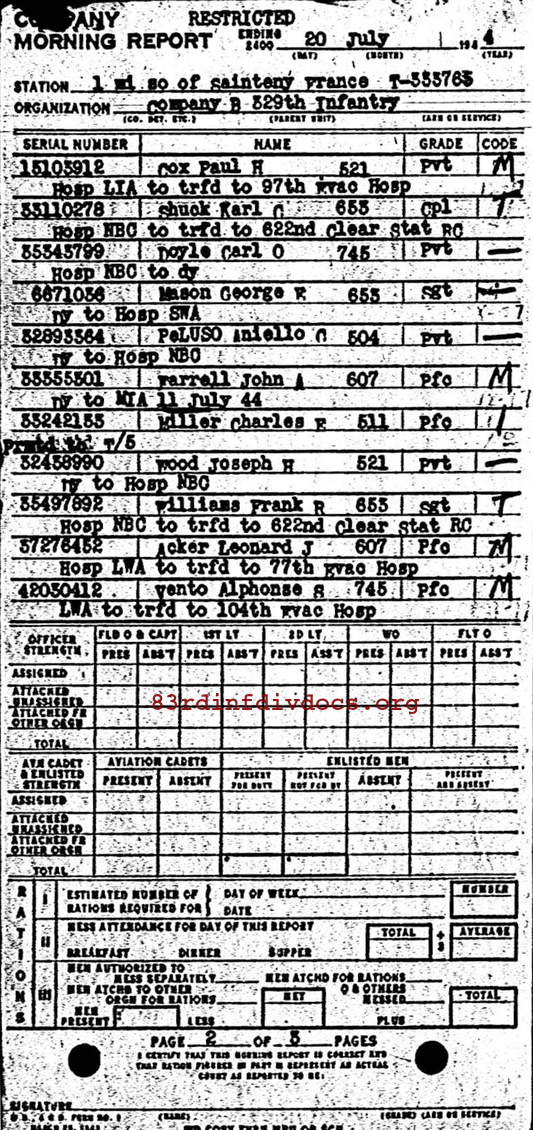 COMPANY RESTRICTED
MORNING REPORT ENDING 2400 20 July 194 4
(DAY) (MONTH) (YEAR)
STATION 1 mi so of sainteny France T-333763
ORGANIZATION Company B 329th Infantry
(CO. DET. ETC.) (PARENT UNIT) (ARM OR SERVICE)
SERIAL NUMBER NAME GRADE CODE
15103912 Cox Paul H 521 Pvt M
Hosp LIA to trfd to 97th Evac Hosp
33110278 Shuck Karl C 653 Cpl T
Hosp NBC to trfd to 622nd Clear Stat RC
35343799 Doyle Carl O 745 Pvt —
Hosp NBC to dy
6671036 Mason George E 653 Sgt —
Dy to Hosp SWA
32893364 PeLUSO Aniello C 504 Pvt —
Dy to Hosp NBC
33555501 Farrell John A 607 Pfc M
Dy to MIA 11 July 44
33242133 Miller Charles E 511 Pfc
T/5
32438990 Wood Joseph H 521 Pvt —
Dy to Hosp NBC
35497892 Williams Frank R 653 Sgt T
Hosp NBC to trfd to 622nd Clear Stat RC
37276452 Acker Leonard J 607 Pfc M
Hosp LWA to trfd to 77th Evac Hosp
42030412 Vento Alphonse S 745 Pfc M
LWA to trfd to 104th Evac Hosp
OFFICER STRENGTH FLD O & CAPT 1ST LT 2D LT WO FLT O
PRES ABS'T PRES ABS'T PRES ABS'T PRES ABS'T PRES ABS'T
ASSIGNED
ATTACHED UNASSIGNED
ATTACHED FR OTHER ORGN
83rdinfdivdocs.org
TOTAL
AVN CADET & ENLISTED STRENGTH AVIATION CADETS ENLISTED MEN
PRESENT ABSENT PRESENT FOR DUTY PRESENT NOT FOR DY ABSENT PRESENT AND ABSENT
ASSIGNED
ATTACHED UNASSIGNED
ATTACHED FR OTHER ORGN
TOTAL
RATIONS
I ESTIMATED NUMBER OF RATIONS REQUIRED FOR { DAY OF WEEK NUMBER
DATE
II MESS ATTENDANCE FOR DAY OF THIS REPORT TOTAL ÷ 3 AVERAGE
BREAKFAST DINNER SUPPER
III MEN AUTHORIZED TO MESS SEPARATELY MEN ATCHD FOR RATIONS
MEN ATCHD TO OTHER ORGN FOR RATIONS NET O & OTHERS MESSED TOTAL
MEN PRESENT LESS PLUS
PAGE 2 OF 3 PAGES
I CERTIFY THAT THIS MORNING REPORT IS CORRECT AND
THAT RATION FIGURES IN PART III REPRESENT AN ACTUAL
COUNT AS REPORTED TO ME:
SIGNATURE
FORM NO. 1 (NAME) (GRADE) (ARM OR SERVICE)